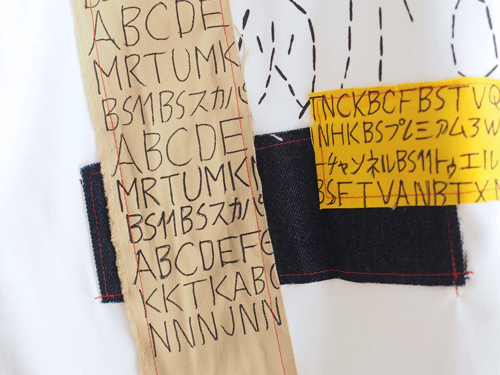 ABCDE
MRTUMK
BS11BSスカパ
ABCDE
MRTUMK
BS11BSスカパ
ABCDEF
KKTKABC
NNNJNN
TNCKBCFBSTVQ
NHKBSプレミアム3W
チャンネルBS11トゥエル
BSFTVANBTX